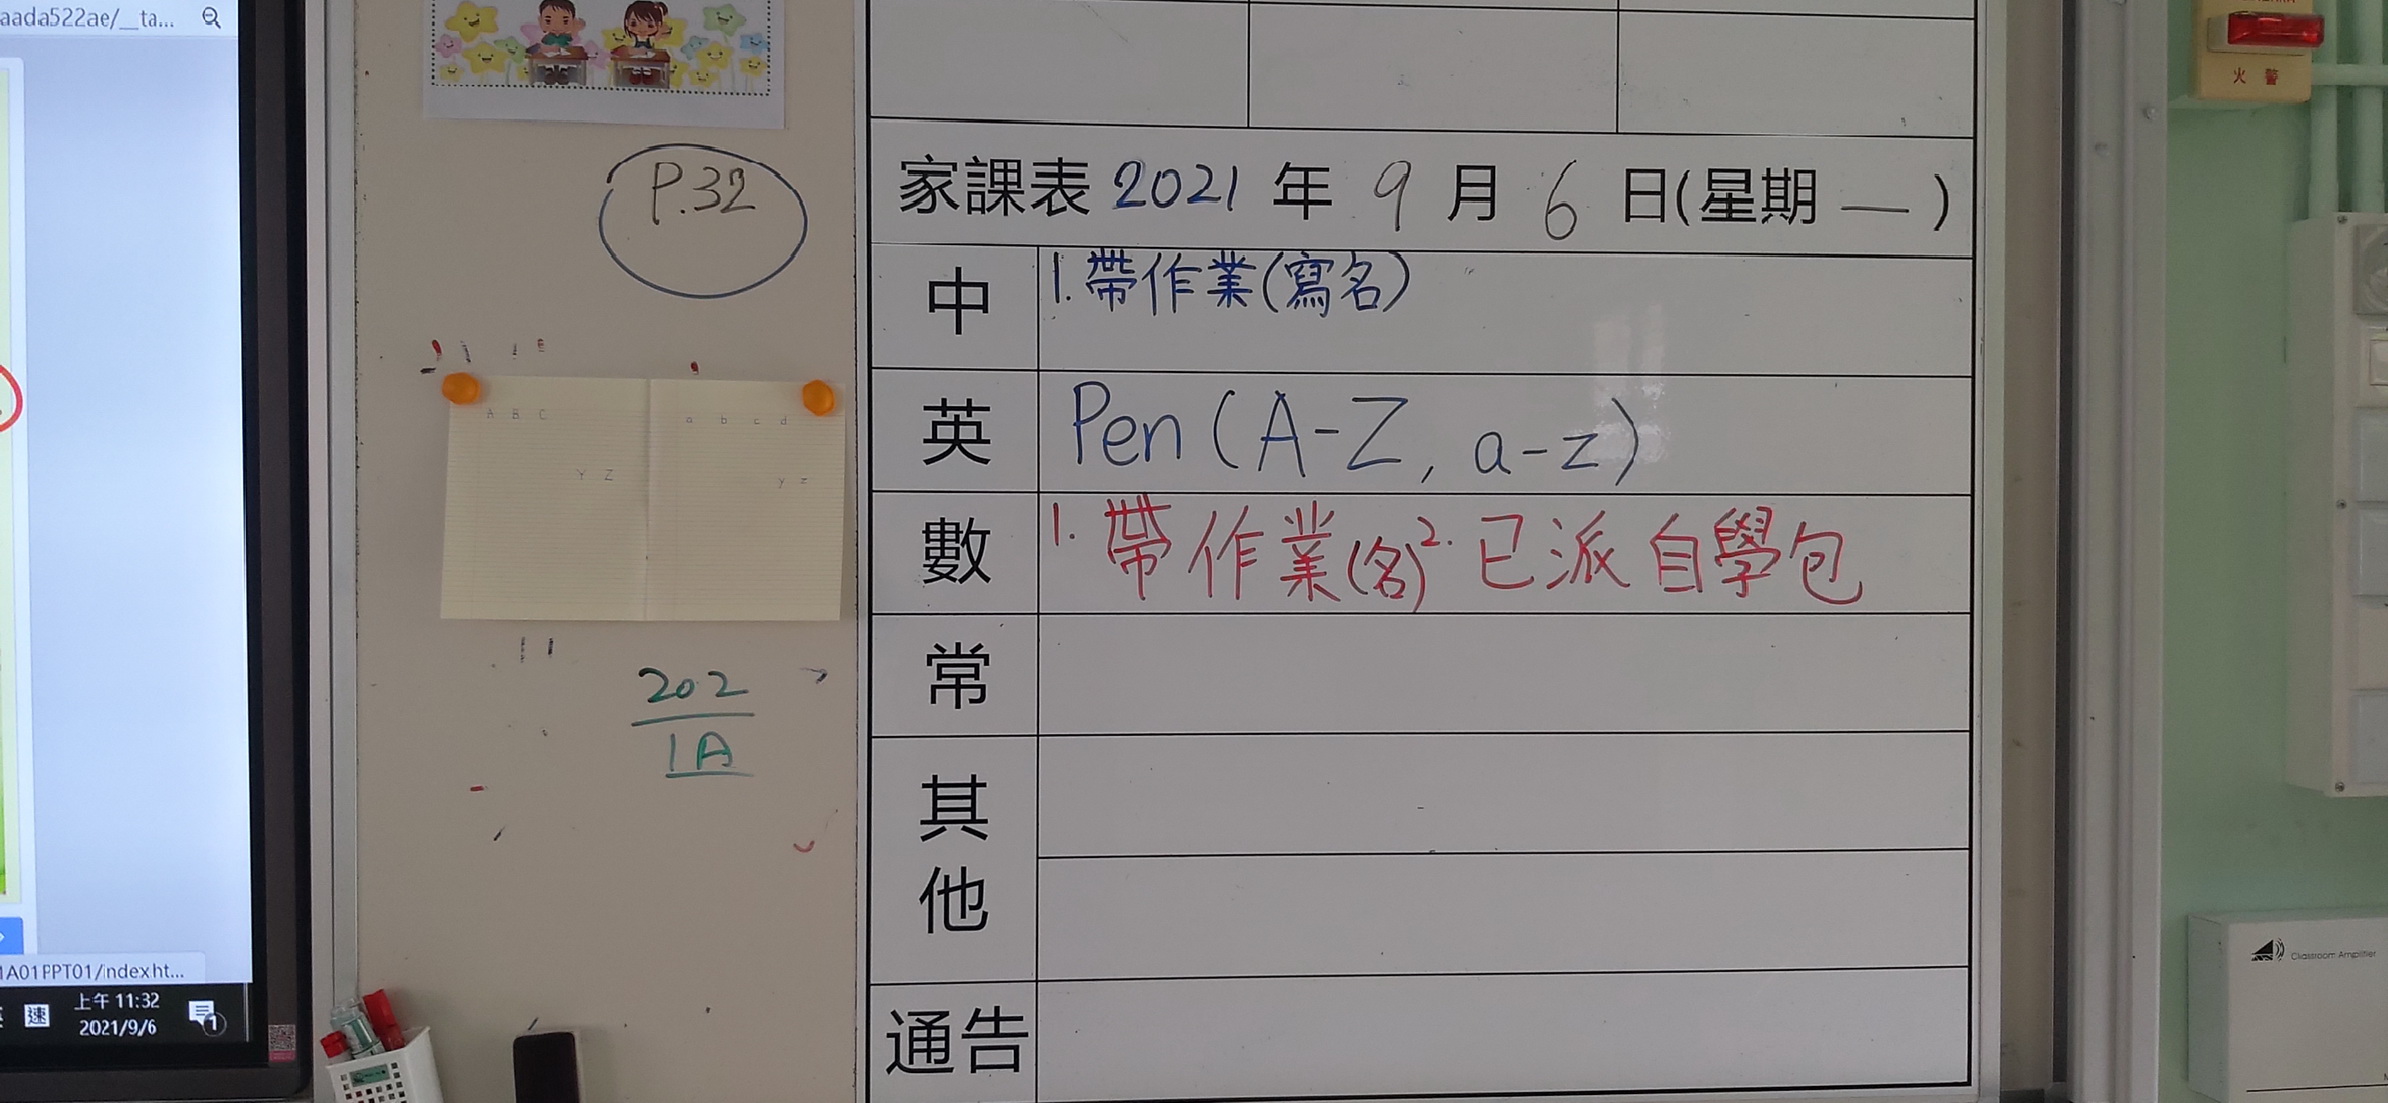 aada522ae/__ta...
火警
P.32
家課表 2021 年 9 月 6 日(星期 一 )
中
1. 帶作業(寫名)
英
Pen (A-Z, a-z)
數
1. 帶作業(名) 2. 已派自學包
常
其他
通告
A B C
a b c d
Y Z
y z
202
1A
1A01PPT01/index.ht...
速
上午 11:32
2021/9/6
1
Classroom Amplifier